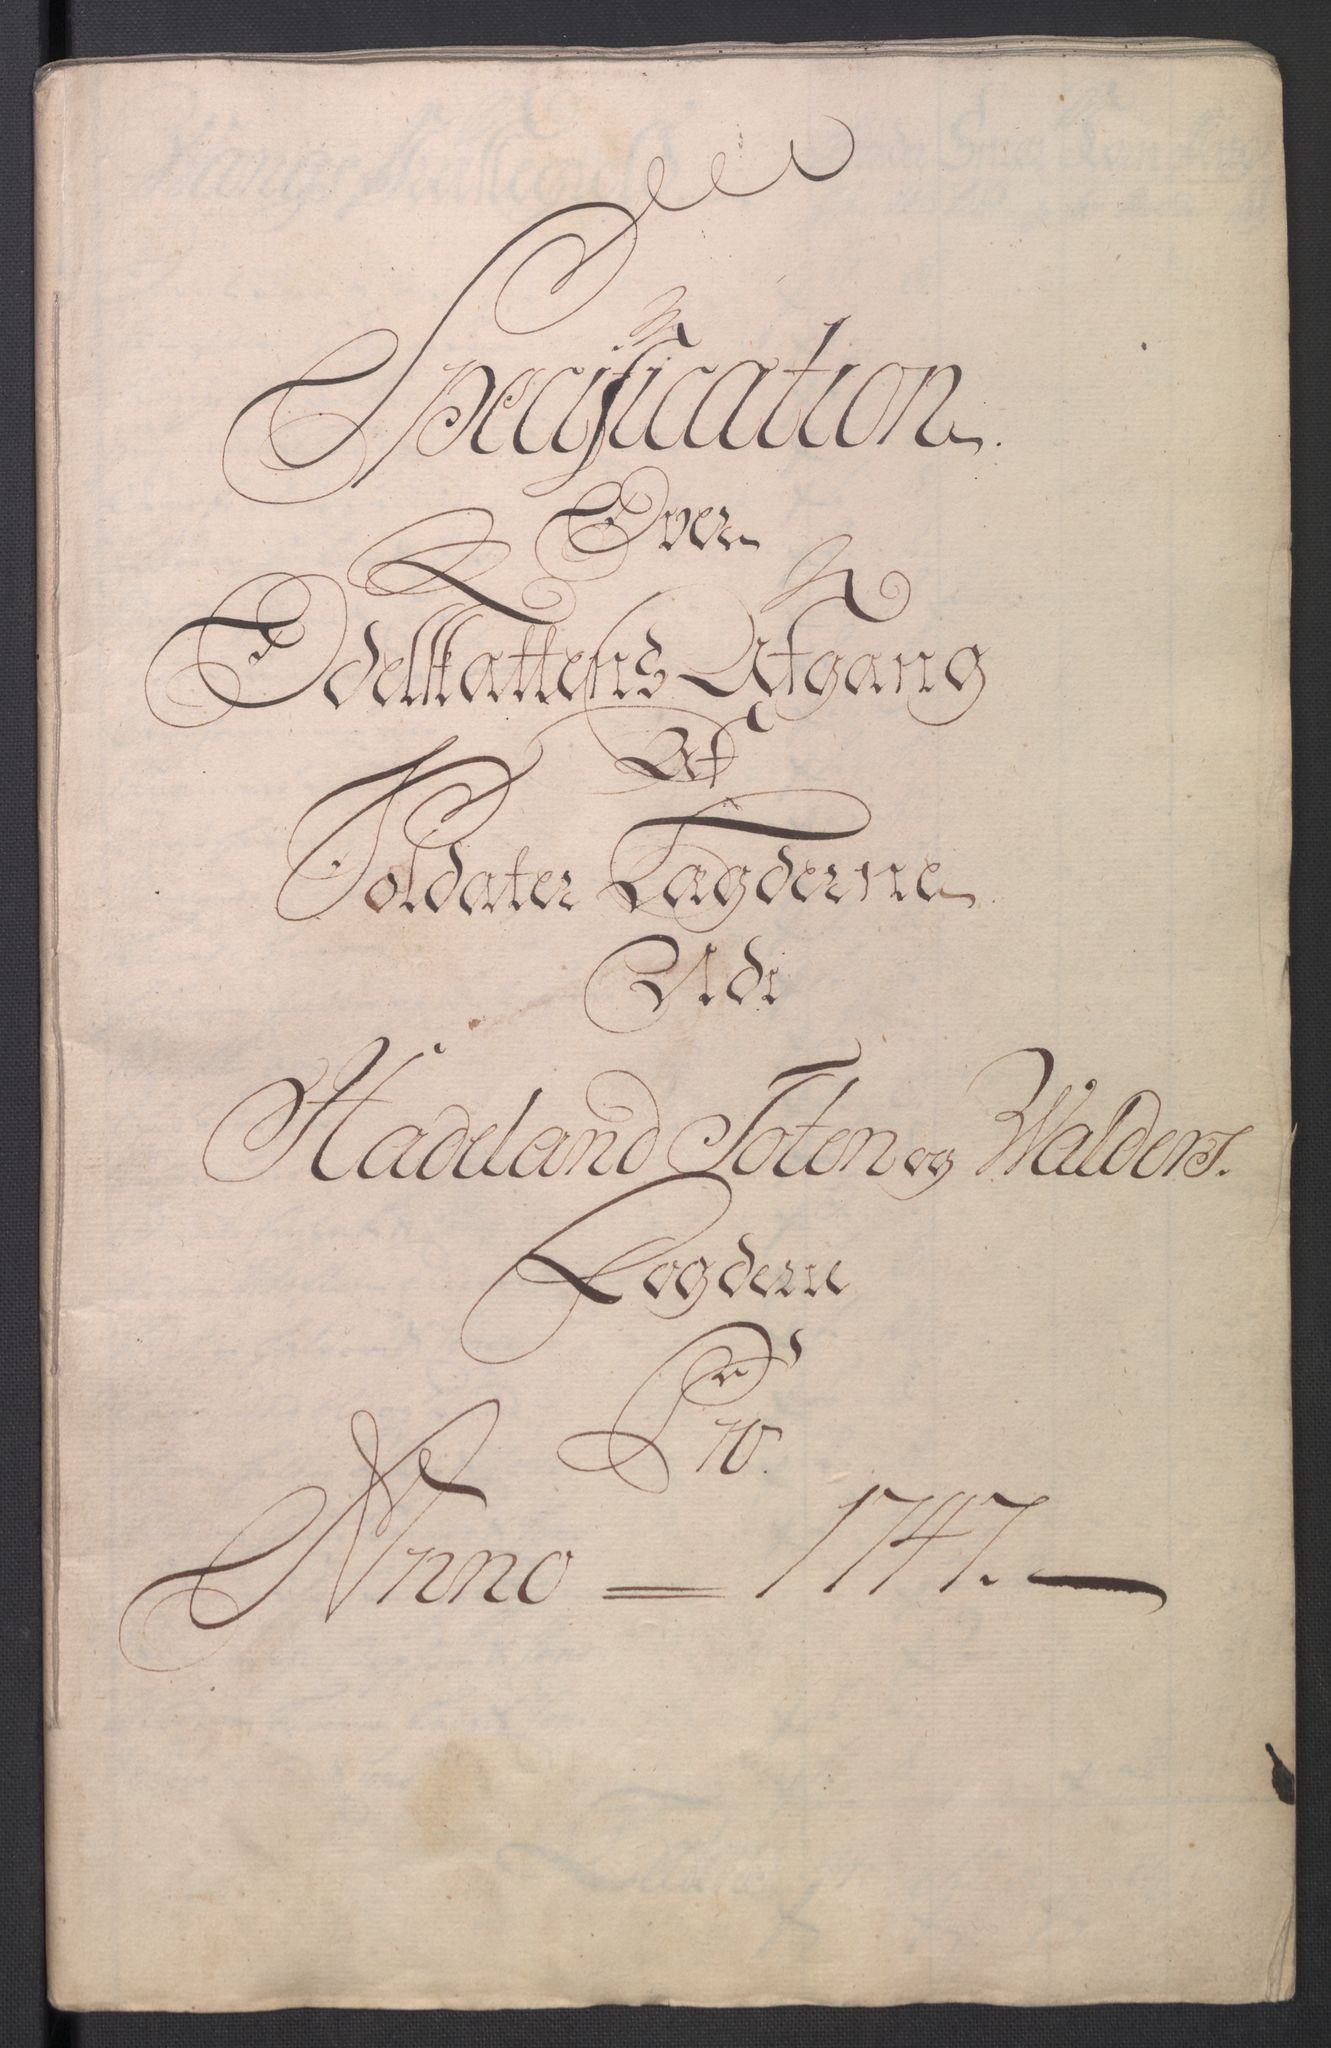 Specification
Over
Odelskattens Afgang
Af
Soldater Lægderne
Udi
Hadeland Toten og Walders.
Fogderie
Pro.
Anno = 1747. —